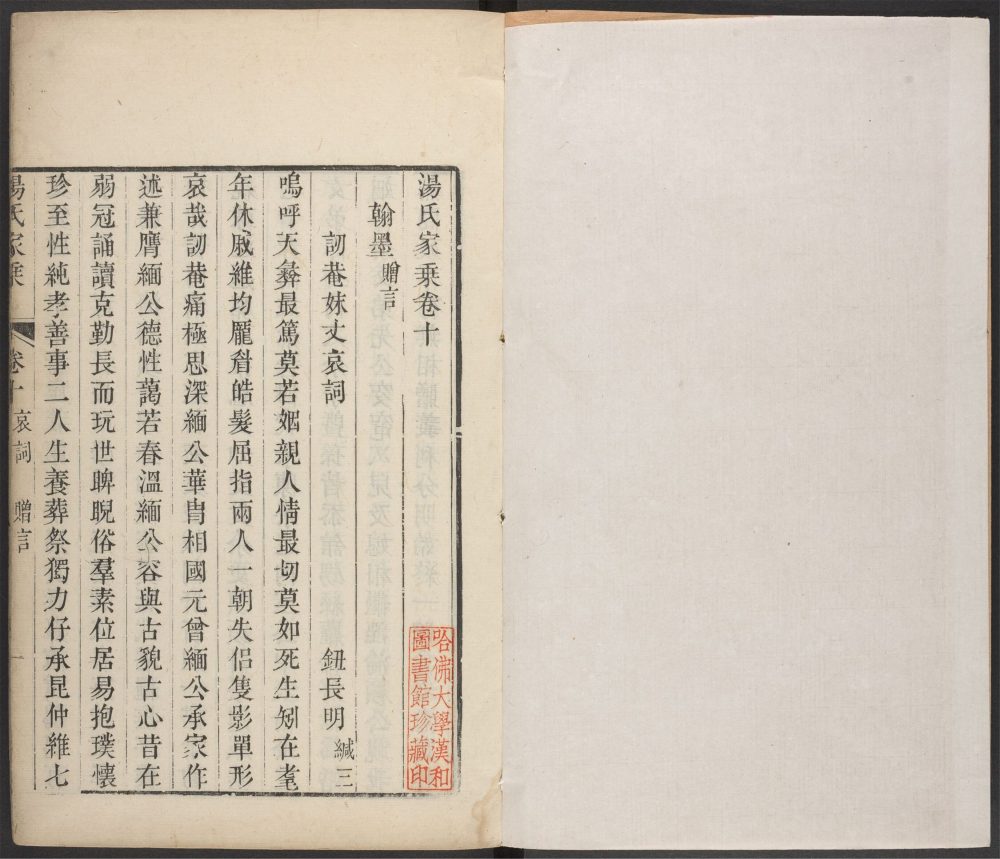 湯氏家乗卷十
翰墨贈言
訒菴妹丈哀詞　鈕長明緘三
嗚呼天彝最篤莫若姻親人情最切莫如死生矧在耄
年休戚維均龎眉皓髮屈指兩人一朝失侶隻影單形
哀哉訒菴痛極思深緬公華胄相國元曾緬公承家作
述兼膺緬公德性藹若春溫緬公容與古貌古心昔在
弱冠誦讀克勤長而玩世睥睨俗羣素位居易抱璞懷
珍至性純孝善事二人生養葬祭獨力仔承昆仲維七
湯氏家乗　卷十　哀詞　贈言　一
哈佛大學漢和
圖書館珍藏印